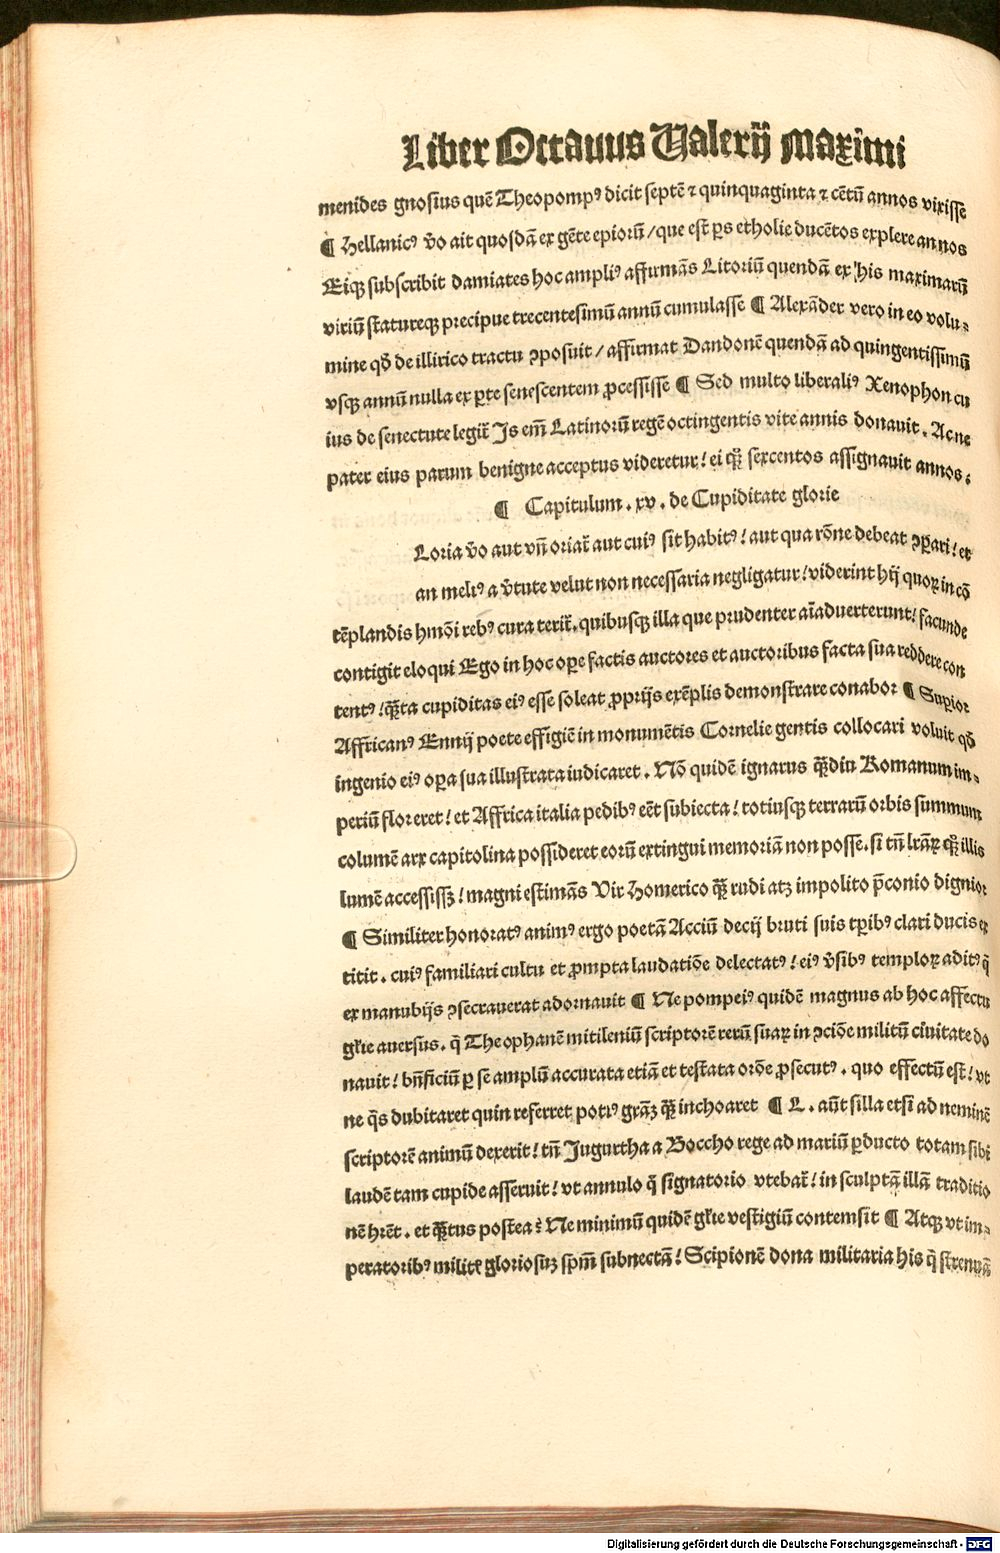 Liber Octauus Ualerij Maximi
menides gnosius quē Theopompꝰ dicit septē ⁊ quinquaginta ⁊ cētū annos vixisse
¶ Hellanicꝰ v̄o ait quosdā ex gēte epiorū / que est ꝑs etholie ducētos explere annos
Eiqꝫ subscribit damiates hoc ampliꝰ affirmās Litoriū quendā ex his maximarū
viriū statureqꝫ precipue trecentesimū annū cumulasse ¶ Alexāder vero in eo volu⸗
mine qd̄ de illirico tractu ꝯposuit / affirmat Dandonē quendā ad quingentissimū
vsqꝫ annū nulla ex ꝑte senescentem ꝓcessisse ¶ Sed multo liberaliꝰ Xenophon cu
ius de senectute legit̄ Is em̄ Latinorū regē octingentis vite annis donauit . Ac ne
pater eius parum benigne acceptus videretur / ei qꝫ sexcentos assignauit annos .
¶ Capitulum . xv . de Cupiditate glorie
Loria v̄o aut vn̄ oriat̄ aut cuiꝰ sit habitꝰ / aut qua rōne debeat ꝯꝑari / et
an meliꝰ a v̄tute velut non necessaria negligatur / viderint hij quoꝝ in cō
tēplandis hmōi rebꝰ cura terit̄ . quibusqꝫ illa que prudenter aīaduerterunt / facunde
contigit eloqui Ego in hoc oꝑe factis auctores et auctoribus facta sua reddere con
tentꝰ / qꝫ̄ta cupiditas eiꝰ esse soleat ꝓprijs exēplis demonstrare conabor ¶ Suꝑior
Affricanꝰ Ennij poete effigiē in monumētis Cornelie gentis collocari voluit qd̄
ingenio eiꝰ oꝑa sua illustrata iudicaret . Nō quidē ignarus qꝫ̄diu Romanum im⸗
periū floreret / et Affrica italia pedibꝰ eēt subiecta / totiusqꝫ terrarū orbis summum
columē arx capitolina possideret eorū extingui memoriā non posse . si tn̄ lr̄aꝝ qꝫ illis
lumē accessissꝫ / magni estimās Vir Homerico qꝫ̄ rudi atꝫ impolito p̄conio dignior
¶ Similiter honoratꝰ animꝰ ergo poetā Acciū decij bruti suis tꝑibꝰ clari ducis ex
titit . cuiꝰ familiari cultu et ꝓmpta laudatiōe delectatꝰ / eiꝰ v̄sibꝰ temploꝝ aditꝰ q̄
ex manubijs ꝯsecrauerat adornauit ¶ Ne pompeiꝰ quidē magnus ab hoc affectu
gl̄ie auersus . q̄ Theophanē mitileniū scriptorē rerū suaꝝ in ꝯciōe militū ciuitate do
nauit / bn̄ficiū ꝑ se amplū accurata etiā et testata orōe ꝓsecutꝰ . quo effectū est / vt
ne q̄s dubitaret quin referret potiꝰ grāꝫ qꝫ̄ inchoaret ¶ L . aūt silla etsi ad neminē
scriptorē animū dexerit / tn̄ Iugurtha a Boccho rege ad mariū ꝑducto totam sibi
laudē tam cupide asseruit / vt annulo q̄ signatorio vtebat̄ / in sculptā illā traditio
nē hr̄et . et qꝫ̄tus postea : Ne minimū quidē gl̄ie vestigiū contemsit ¶ Atqꝫ vt im⸗
peratoribꝰ milit̄ gloriosuꝫ spm̄ subnectā / Scipionē dona militaria his q̄ strenuā
Digitalisierung gefördert durch die Deutsche Forschungsgemeinschaft - DFG